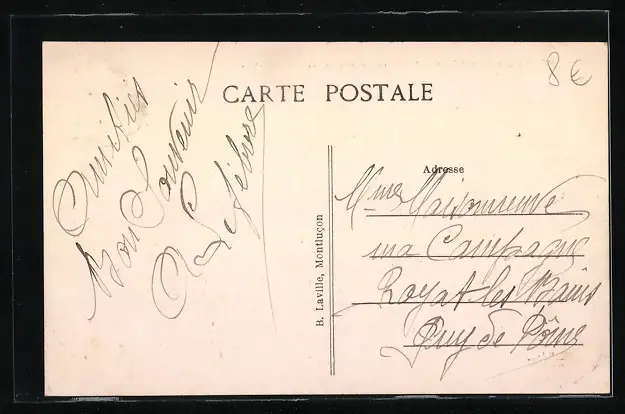 8 €
CARTE POSTALE
Amitiés
Bon Souvenir
Lefebvre
B. Laville, Montluçon
Adresse
Mme Maisonneuve
ma Campagne
Royat les Bains
Puy de Dôme